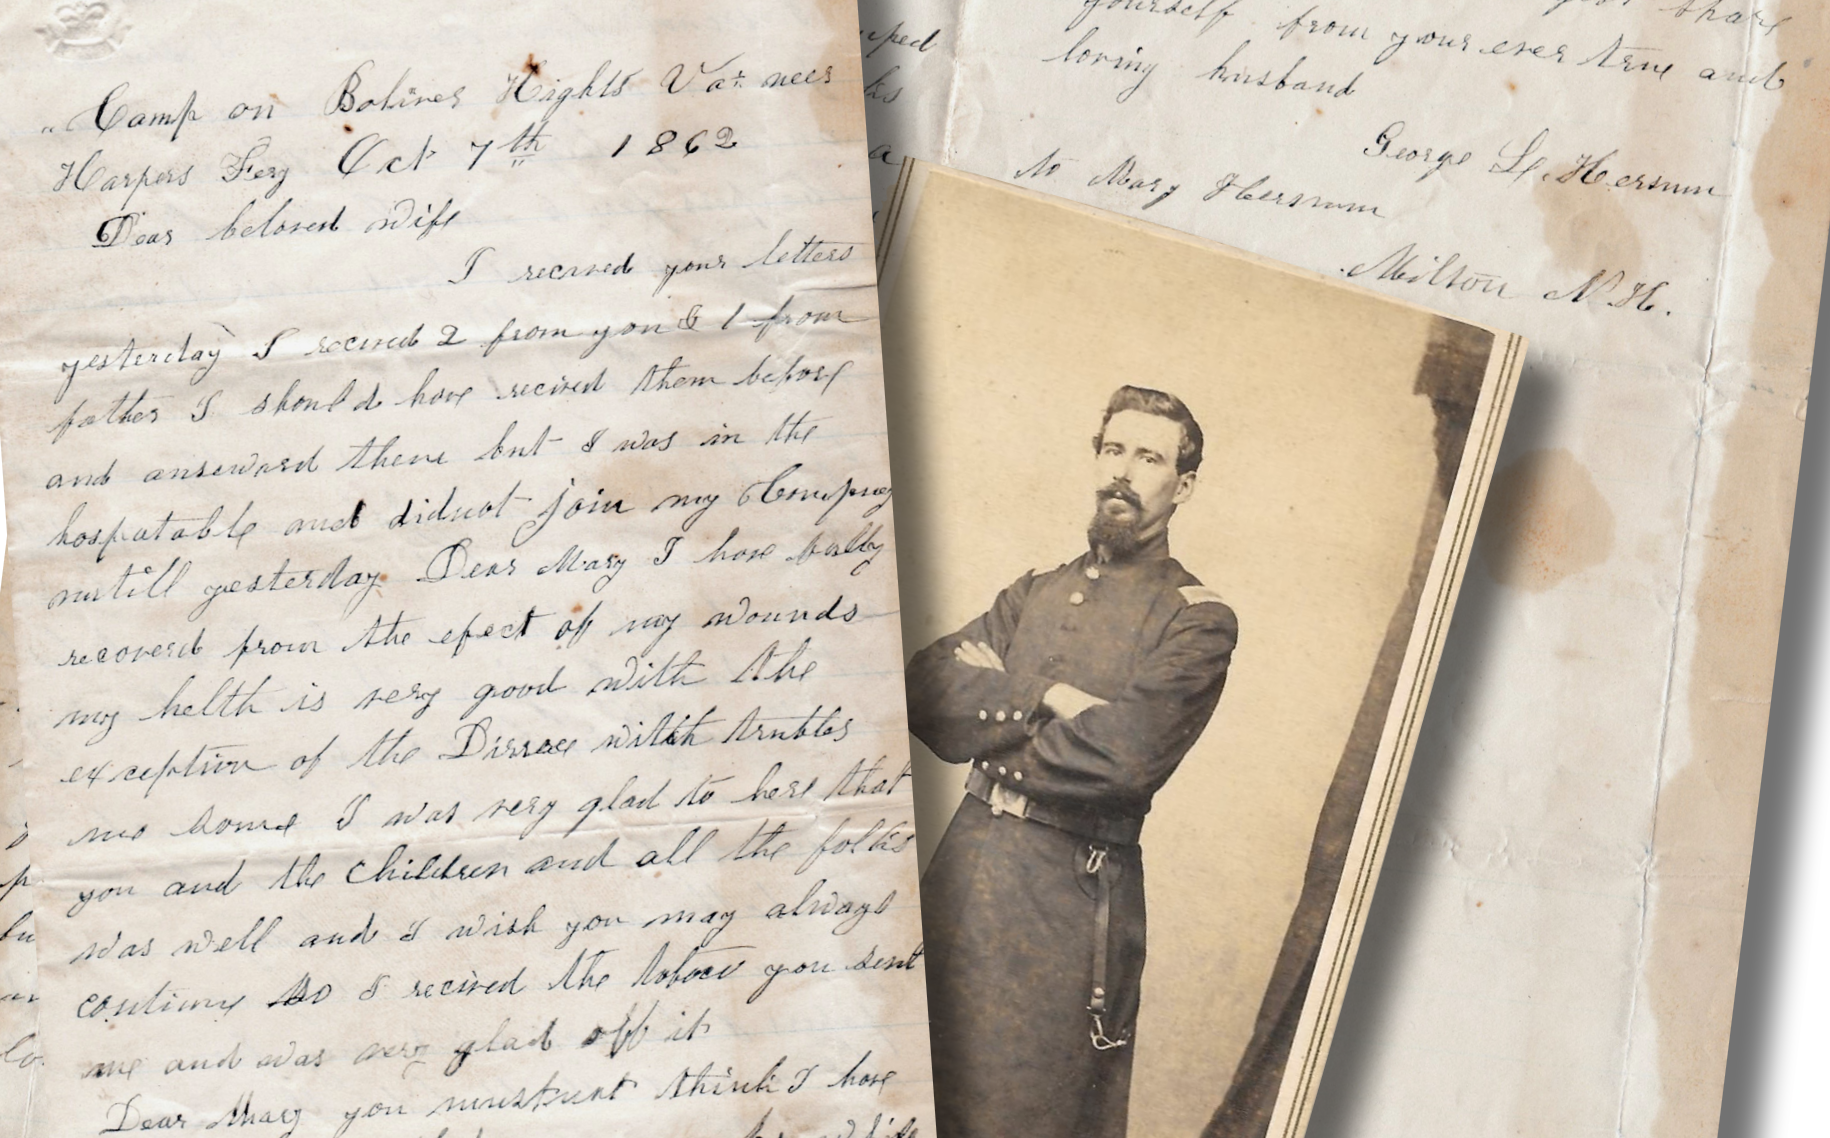 Camp on Boliver Hights Va: neer
Harpers Fery Oct 7th 1862
Dear beloved wife
I recived your letters
yesterday I recived 2 from you & 1 from
father I should have recived them before
and answard them but I was in the
hospatable and didnot join my Company
untill yesterday Dear Mary I have fully
recoverd from the efect of my wounds
my helth is very good with the
exception of the Dirrae witch trubles
me some I was very glad to here that
you and the Children and all the folks
was well and I wish you may always
continue so I recived the tobaco you sent
me and was very glad off it
Dear Mary you mustnut think I have
wife
share
yourself from your ever true and
loving husband
George L. Hersum
to Mary Hersum
Milton N.H.